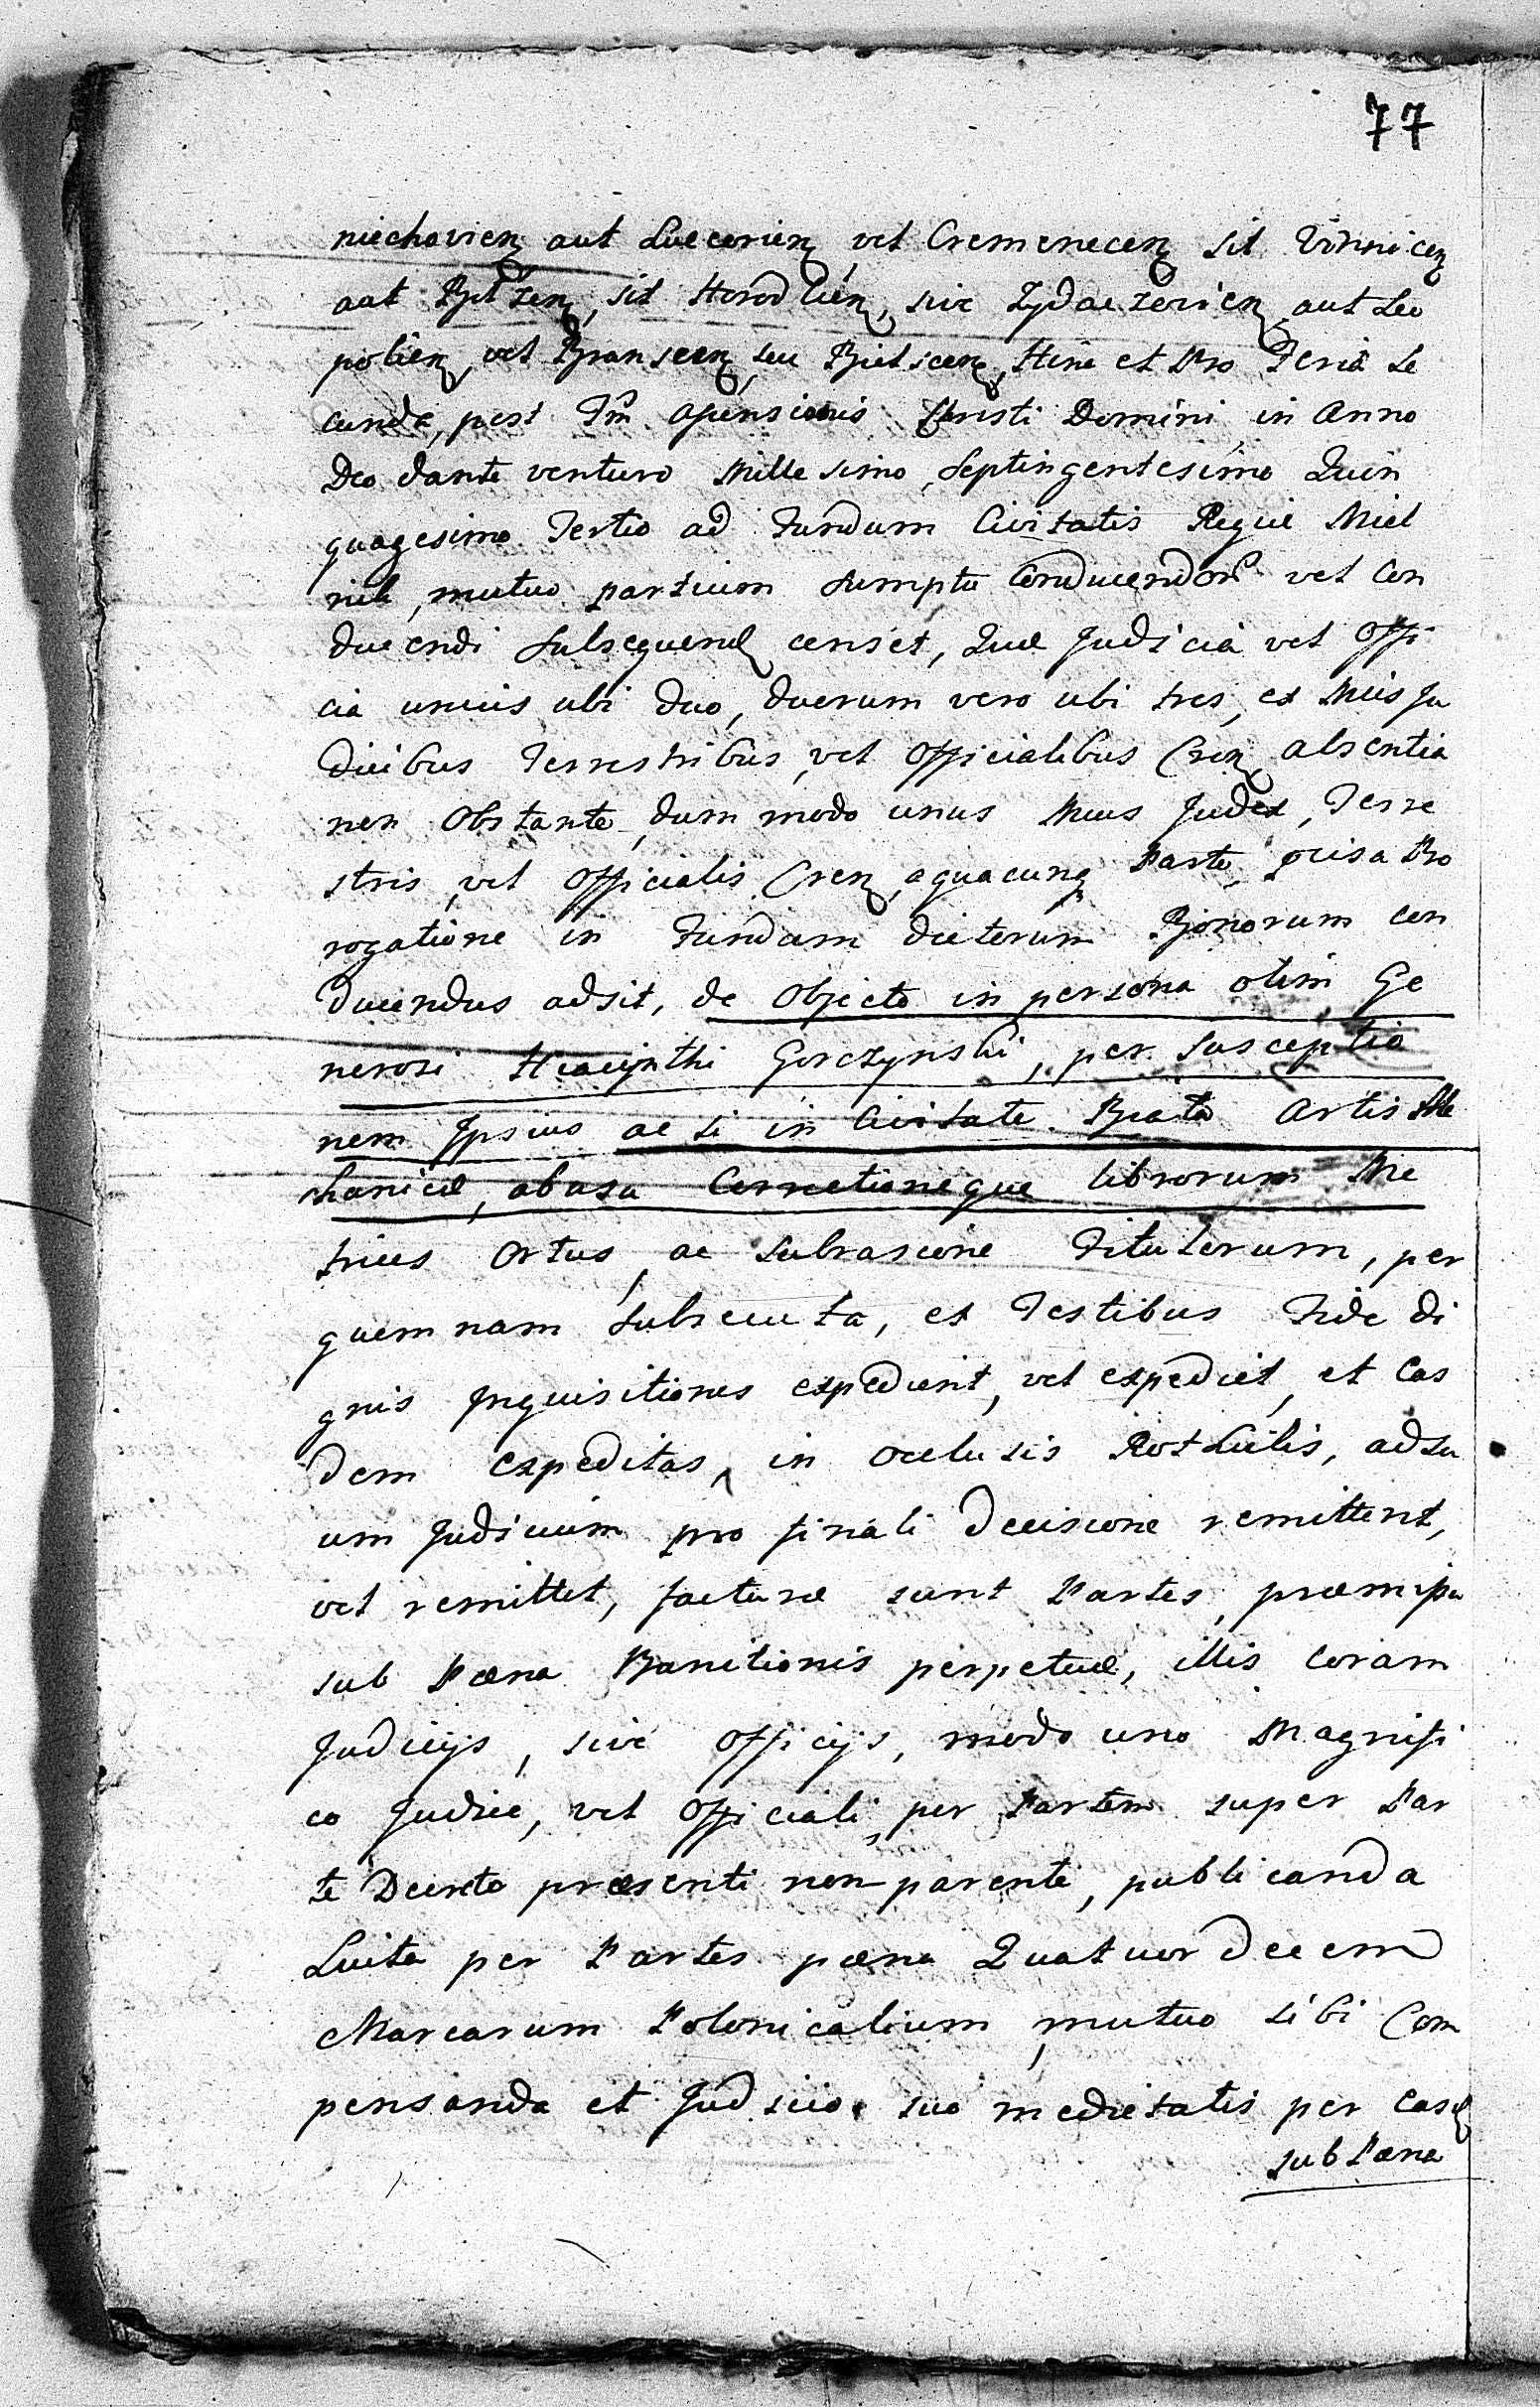 77
niechovien aut Luceorien, vel Cremenecen sit Vinnicen
aut Belzen, sit Horodlien, sive Zydaczovien aut Leo
polien, vel Branscen, seu Bielscen, Hinc et Pro Feria Se
cunda, post Fm Ascensionis Christi Domini, in Anno
Deo dante venturo Mille simo, Septingentesimo Quin
quagesimo Tertio ad Fundum Civitatis Regiæ Miel
nik, mutuo partium Sumptu Conducendor vel Con
ducendi Subsequen censet, Quæ Judicia vel Offi
cia unius ubi duo, duorum vero ubi tres, ex Mcis Ju
dicibus Terrestribus, vel Officialibus Cren, absentia
non Obstante, dum modo unus Mcus Judex, Terre
stris, vel Officialis Cren, aquacunq Parte, prævisa Pro
rogatione in Fundum dictorum Bonorum con
ducendus adsit, de Objecto in persona olim Ge
nerosi Hiacynthi Gorczynski, per susceptio
nem Ipsius ac si in Civitate Brata Artis Me
chanicæ, abusu Correctioneque librorum Me
trices Ortus, ac Subrasione Titulorum, per
quemnam Subsecuta, ex Testibus Fide di
gnis Inquisitiones expedient, vel expediet, et Eas
dem expeditas, in occlusis Rothulis, ad su
um Judicium pro finali Decisione remittent,
vel remittet, facturæ sunt Partes, præmissa
sub Pœna Banitionis perpetuæ, illis Coram
Judicijs, sive Officijs, modo uno Magnifi
co Judice, vel Officiali, per Partem super Par
te Decreto præsenti non parente, publicanda
Luita per Partes pœna Quatuor decem
Marcarum Polonicalium, mutuo sibi Com
pensanda et Judicio suo medietatis per Easd
sub Pœna